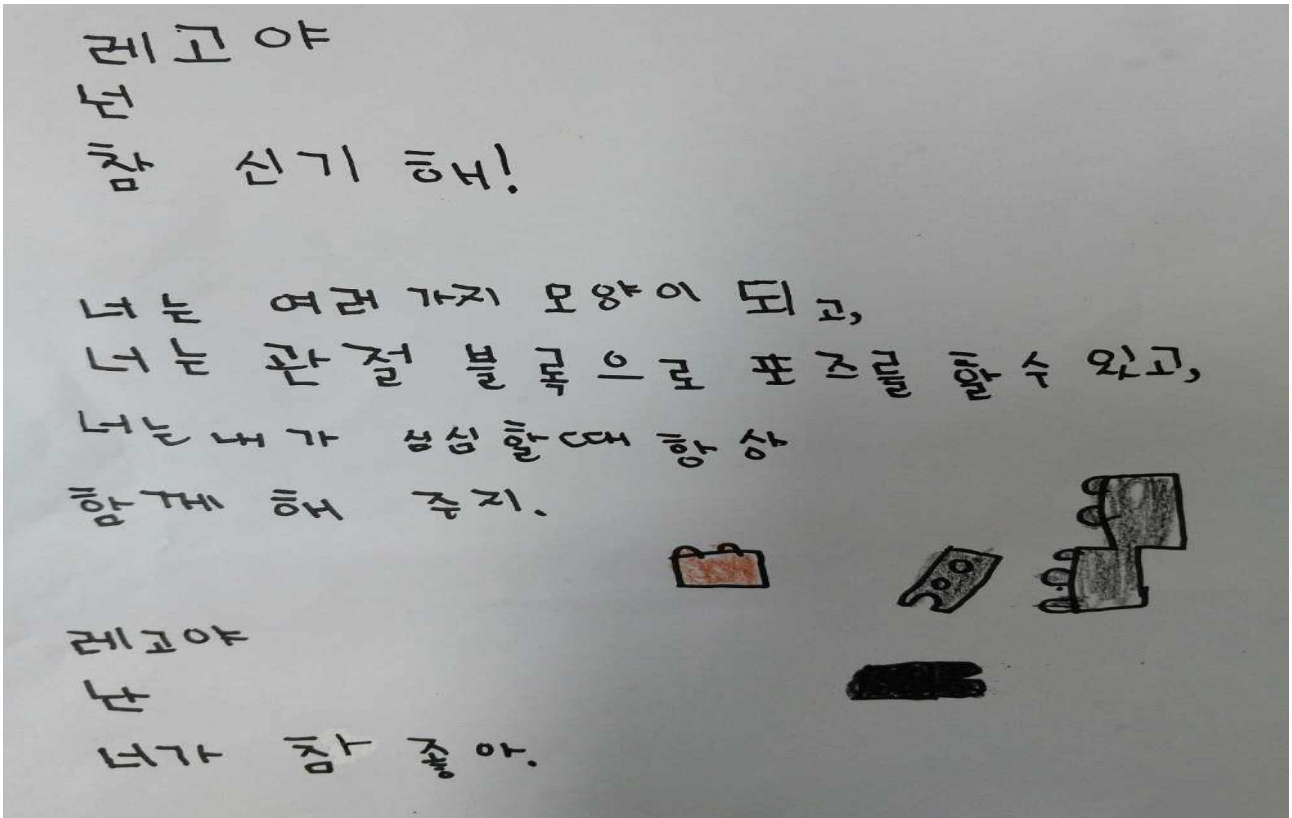 레고야
넌
참 신기 해!
너는 여러 가지 모양이 되고,
너는 관절 블록으로 포즈를 할 수 있고,
너는 내가 심심할때 항상
함께 해 주지.
레고야
난
너가 참 좋아.